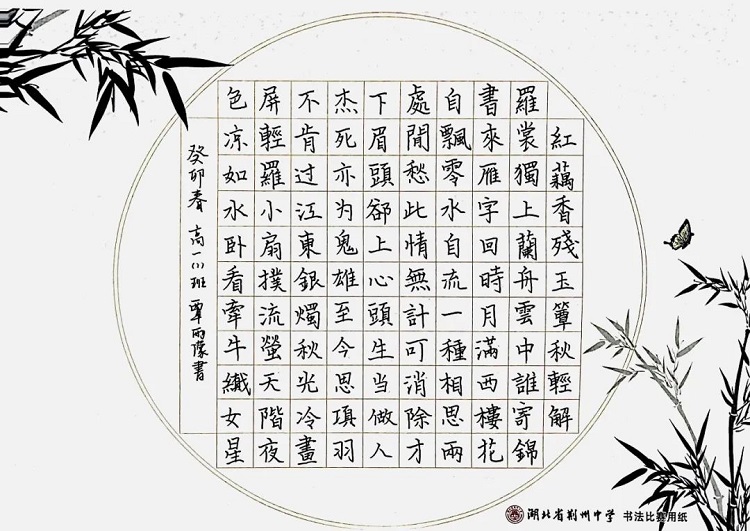 紅藕香殘玉簟秋輕解
羅裳獨上蘭舟雲中誰寄錦
書來雁字回時月滿西樓花
自飄零水自流一種相思兩
處閒愁此情無計可消除才
下眉頭卻上心頭生当做人
杰死亦为鬼雄至今思項羽
不肯过江東銀燭秋光冷畫
屏輕羅小扇撲流螢天階夜
色凉如水卧看牽牛織女星
癸卯春 高一(1)班 覃雨濛書
湖北省荆州中学 书法比赛用纸